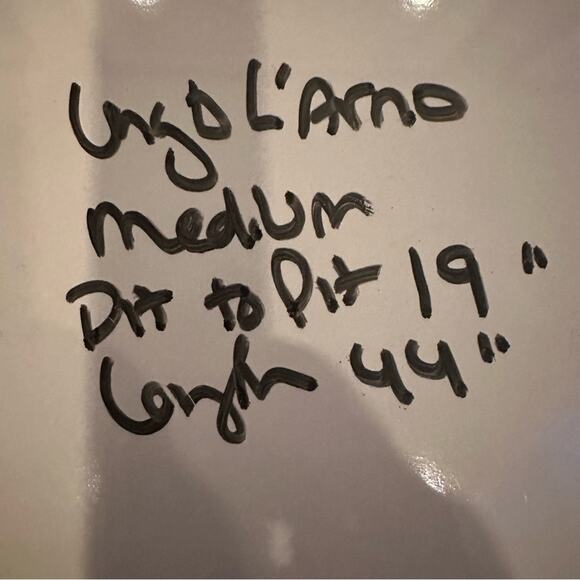 Lungo L'Arno
medium
Pit to Pit 19"
Length 44"